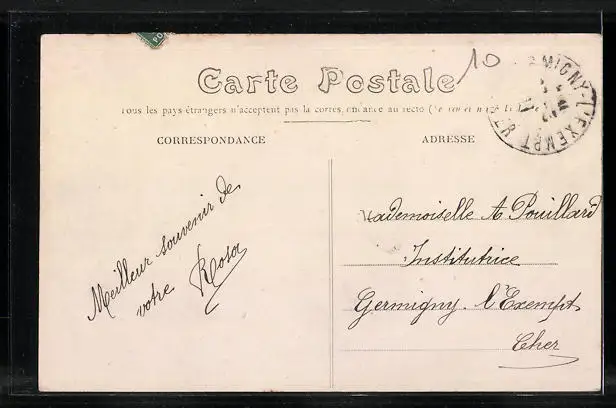 10
Carte Postale
Tous les pays étrangers n'acceptent pas la correspondance au recto
CORRESPONDANCE
ADRESSE
Meilleur souvenir de
votre Rosa
Mademoiselle A Pouillard
Institutrice
Germigny-l'Exempt
Cher
MIGNY-L'EXEMPT